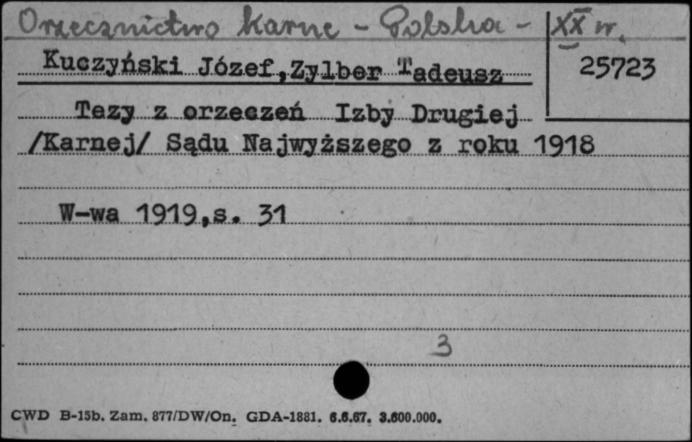 Orzecznictwo karne - Polska - XX w.
Kuczyński Józef, Zylber Tadeusz
25723
Tezy z orzeczeń Izby Drugiej
/Karnej/ Sądu Najwyższego z roku 1918
W-wa 1919,s. 31
3
CWD B-15b. Zam. 877/DW/On. GDA-1881. 6.6.67. 3.600.000.